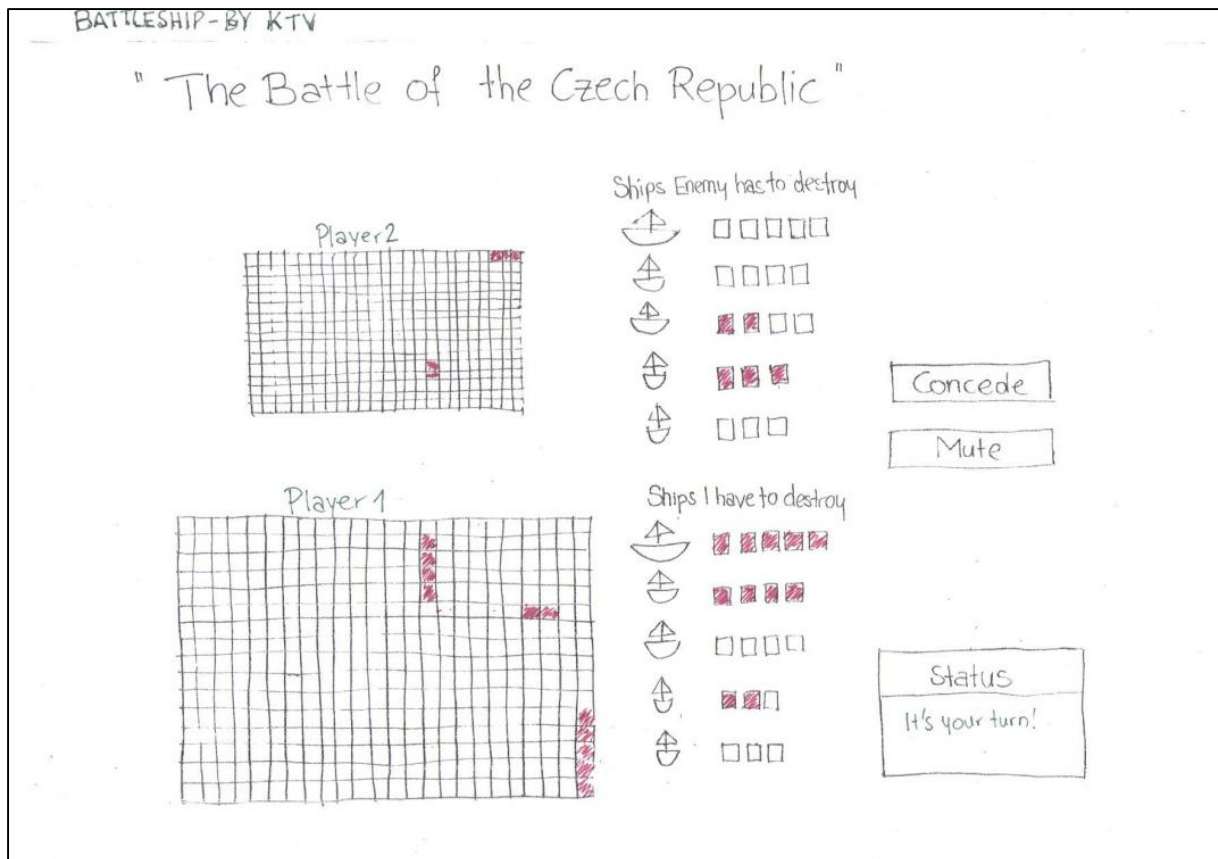 BATTLESHIP - BY KTV
"The Battle of the Czech Republic"
Ships Enemy has to destroy
Player 2
Concede
Mute
Player 1
Ships I have to destroy
Status
It's your turn!